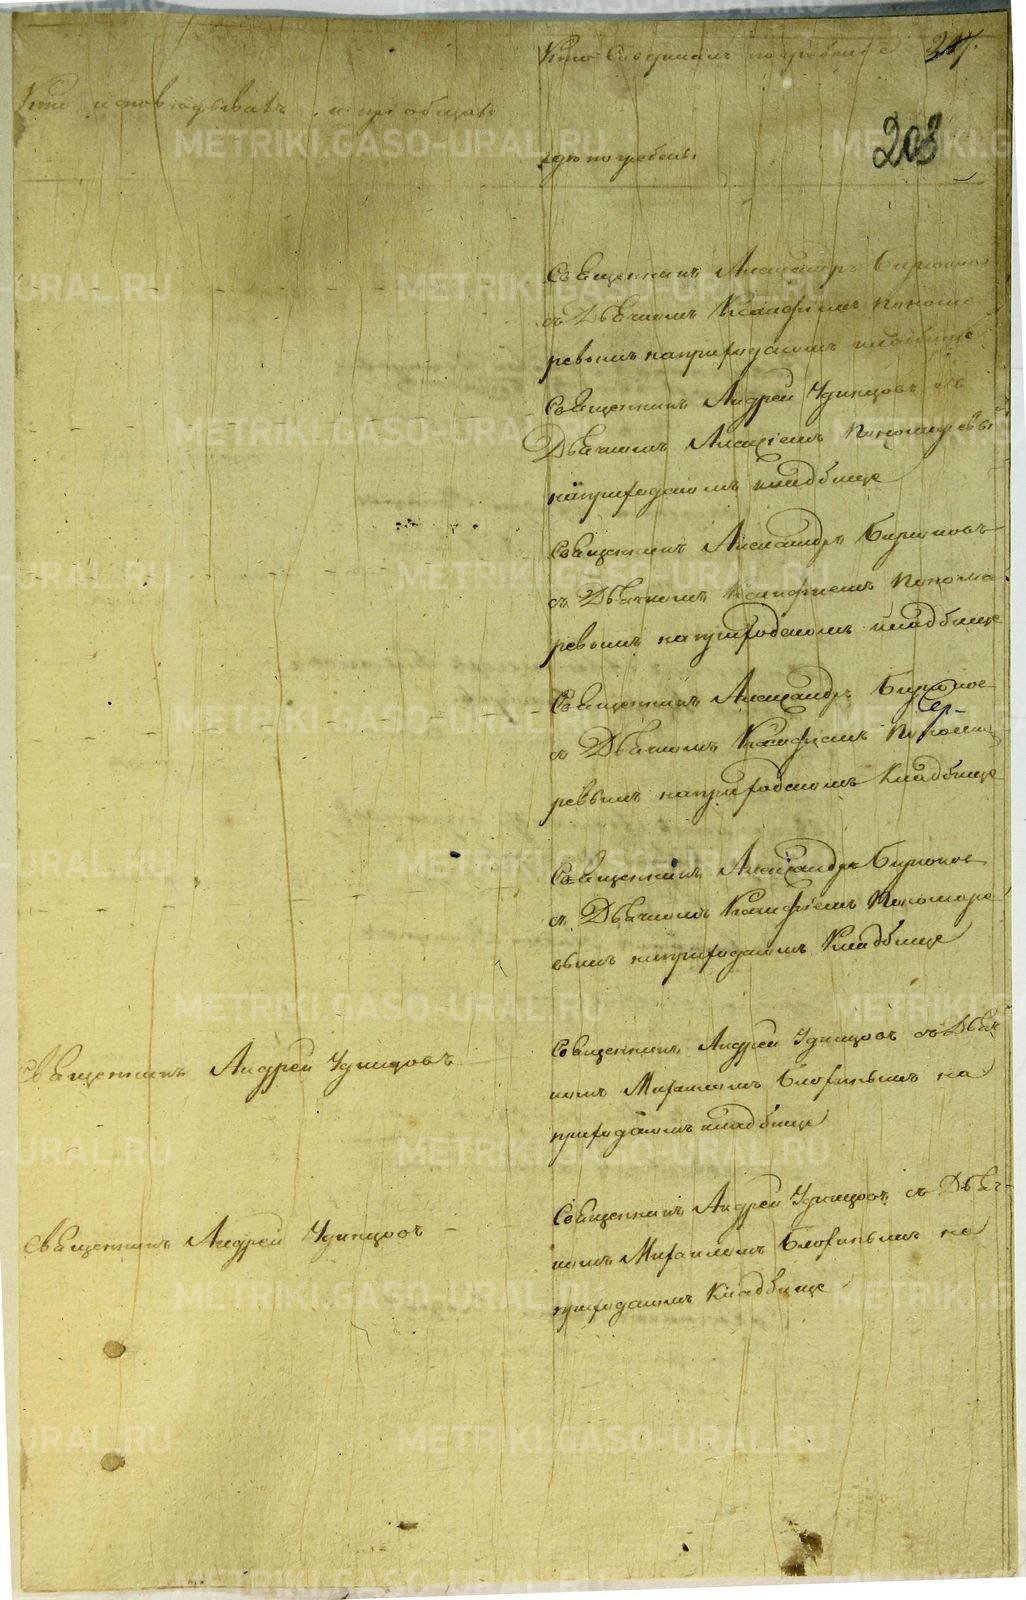 Кто исповѣдывалъ и приобщалъ
Кто совершалъ погребенiе
217.
208
гдѣ погребены
Священникъ Александръ Бирюковъ
съ Дьячкомъ Ксанфiемъ Понома
ревымъ наприходскомъ кладбище
Священникъ Андрей Удинцовъ съ
Дьячкомъ Алексѣемъ Пономаревы
наприходскомъ кладбище
Священникъ Александръ Бирюковъ
съ Дьячкомъ Ксанфiемъ Понома
ревымъ на приходскомъ кладбище
Священникъ Александръ Бирюков
съ Дьячкомъ Ксанфiемъ Понома
ревымъ наприходскомъ Кладбище
Священникъ Александръ Бирюков
съ Дьячкомъ Ксанфiемъ Пономаре
вымъ наприходскомъ Кладбище
Священникъ Андрей Удинцовъ
Священникъ Андрей Удинцов съ Дьяч
комъ Михаиломъ на
приходскомъ кладбище
Священникъ Андрей Удинцов
Священникъ Андрей Удинцов съ Дьяч
комъ Михаиломъ на
приходскомъ Кладбище
METRIKI.GASO-URAL.RU